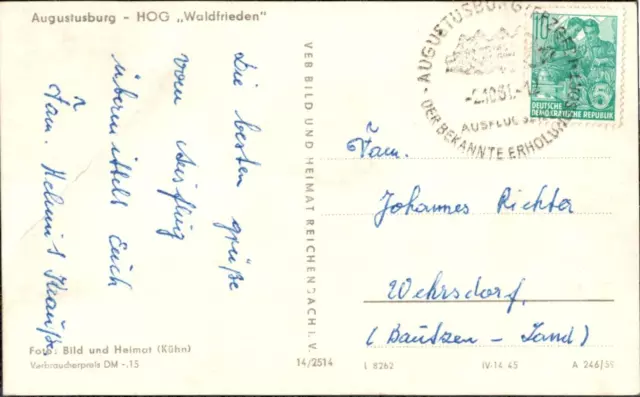 Augustusburg - HOG „Waldfrieden"
Die besten grüße
vom Ausflug
übermittelt Euch
Fam. Helmut Krauße
Foto: Bild und Heimat (Kühn)
Verbraucherpreis DM -.15
VEB BILD UND HEIMAT REICHENBACH I. V.
14/2514
AUGUSTUSBURG (ERZGEB.)
-2.10.61.-1
AUSFLUGS
DER BEKANNTE ERHOLUNGS
10
5
DEUTSCHE
DEMOKRATISCHE REPUBLIK
Fam.
Johannes Richter
Wehrsdorf,
(Bautzen - Land)
L 8262
IV-14 45
A 246/59